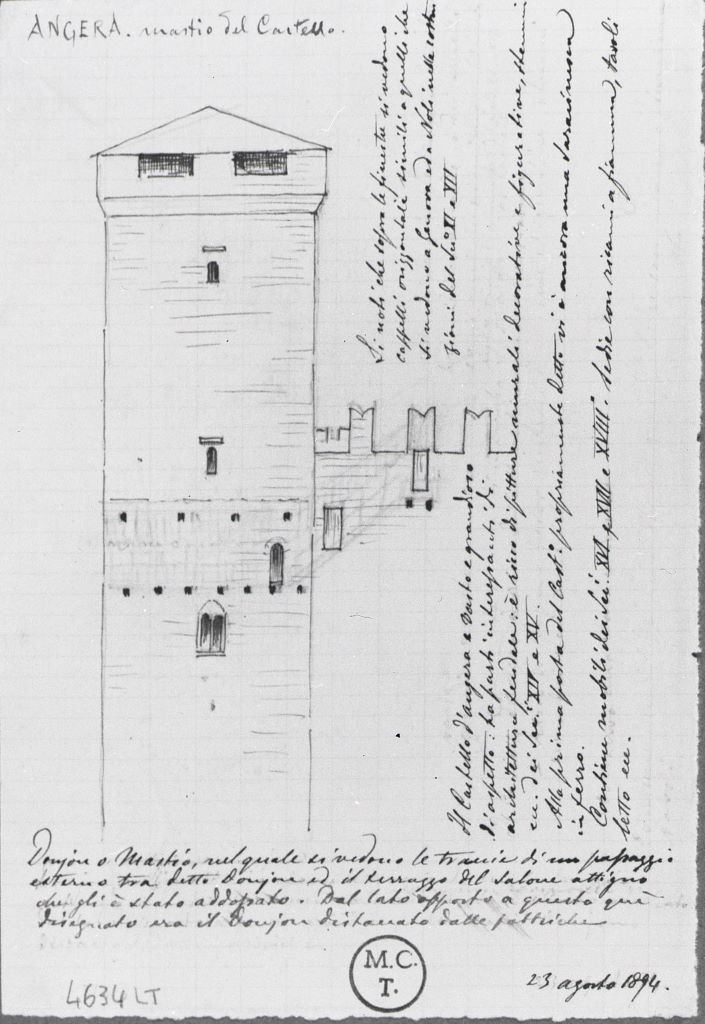 ANGERA. mastio del Castello.
Si noti che sopra le finestre si vedono
cappelli orizzontali simili a quello che
si vedono a Genova ed a Noli nelle costru
zioni del Sec. XI e XII
Il Castello d'Angera è vasto e grandioso
di aspetto: ha parti interessanti di
architettura feudale: è ricco di pitture murali decorative e figurative, stemmi
ecc. dei Sec.i XIV e XV.
Alla prima porta del Cast.o propriamente detto vi è ancora una saracinesca
in ferro.
Contiene mobili dei Sec.i XVI e XVII e XVIII.o Sedie con ricami a fiamma, tavoli
letto ecc.
Donjon o Mastio, nel quale si vedono le traccie di un passaggio
esterno tra detto donjon ed il terrazzo del salone attiguo
che gli è stato addossato. Dal lato opposto a questo quì
disegnato era il Donjon distaccato dalle
M.C.
T.
23 agosto 1894.
4634 LT